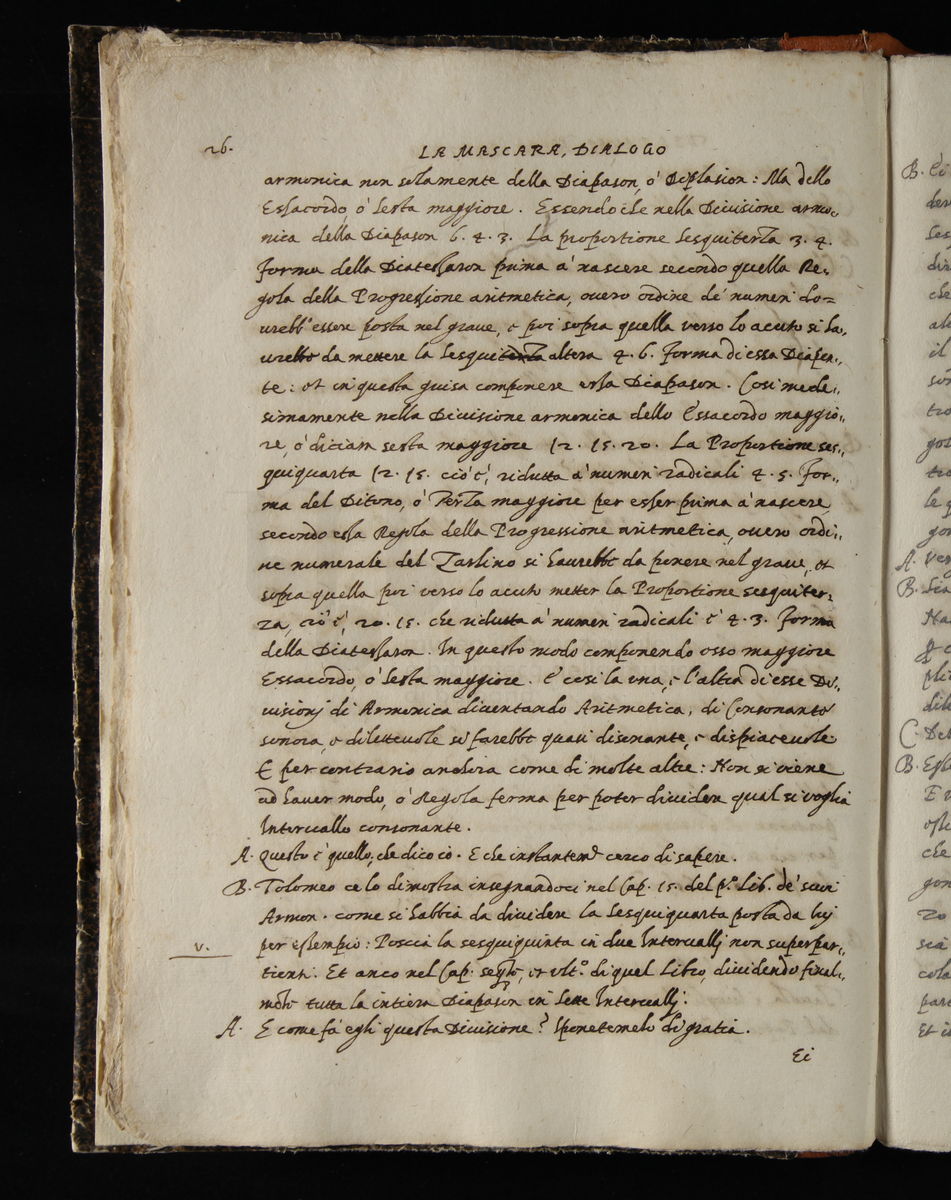 26.
LA MASCARA, DIALOGO
armonica non solamente della Diapason, ó Duplasion: Ma dello
Essacordo, ó Sesta maggiore. Essendo che nella Divisione armo,,
nica della Diapason 6. 4. 3. La proportione Sesquiterza 3. 4.
forma della Diatessaron prima à nascere secondo quella Re,,
gola della Progressione aritmetica, overo ordine dé numeri do=
vrebb'essere posta nel grave, e poi sopra quella verso lo acuto si ha,,
vrebbe da mettere la Sesquialtera 4. 6. forma di essa Diapen,,
te: et in questa guisa componere essa Diapason. Cosi mede,,
simamente nella Divisione armonica dello Essacordo maggio,,
re, ó diciam sesta maggiore 12. 15. 20. La Proportione ses,,
quiquarta 12. 15. ció é, ridutta à numeri radicali 4. 5. for,,
ma del Ditono, ó Terza maggiore per esser prima à nascere
secondo essa Regola della Progressione aritmetica, overo ordi,,
ne numerale del Zarlino si havrebbe da ponere nel grave, et
sopra quella poi verso lo acuto metter la Proportione sesquiter,,
za, ció é, 20. 15. che ridutta à numeri radicali é 4. 3. forma
della Diatessaron. In questo modo componendo esso maggiore
Essacordo, ó Sesta maggiore. E cosi la una, e l'altra di esse Di,,
visionj di Armonica diventando Aritmetica, di Consonante
sonora, e dilettevole si farebbe quasi disonante, e dispiacevole
E per contrario anchora come di molte altre: Non si viene
ad haver modo, ó Regola ferma per poter dividere qual si voglia
Intervallo consonante.
A. Questo é quello, che dico io. E che instantem.e cerco di sapere.
B. Tolomeo ce lo dimostra insegnandoci nel Cap. 15. del p.o Lib. dé suoi
Armon. come si habbia da dividere la Sesquiquarta posta da lui
V.
per essempio: Poscia la sesquiquinta in due Intervallj non superpar,,
tienti. Et anco nel Cap. seg.te, et ult.o di quel Libro, dividendo final,,
m.te tutta la intiera Diapason in sette Intervallj.
A. E come fá egli questa Divisione? Sponetemelo di gratia.
Ei